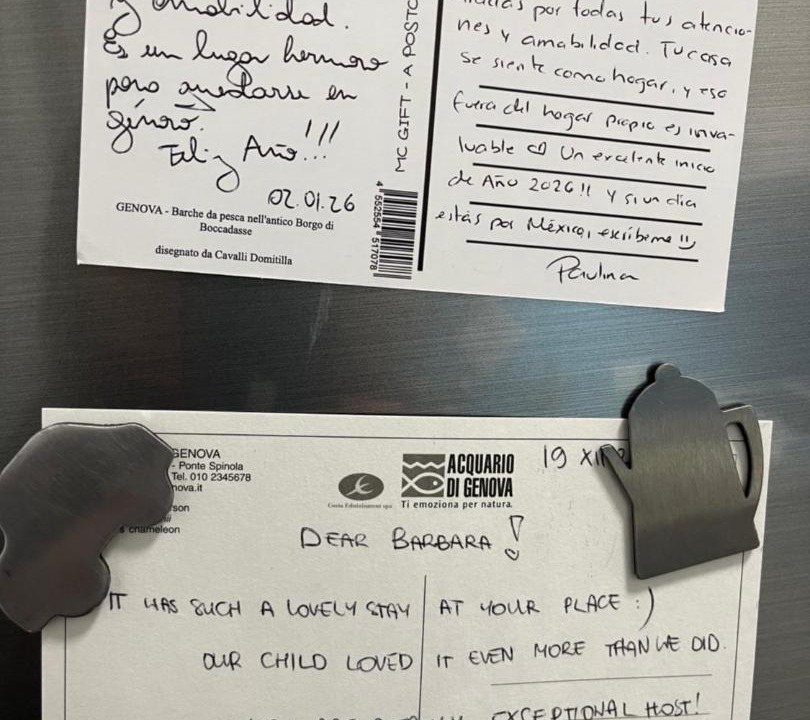 y amabilidad.
Es un lugar hermoso
para quedarse en
Feliz Año!!!
02.01.26
GENOVA - Barche da pesca nell'antico Borgo di
Boccadasse
disegnato da Cavalli Domitilla
MC GIFT - A POSTC
4 552554 517078
por todas tus atencio-
nes y amabilidad. Tu casa
se siente como hogar, y eso
fuera del hogar propio es inva-
luable Un excelente inicio
de Año 2026!! Y si un día
estás por México, escríbeme !!
Paulina
GENOVA
- Ponte Spinola
Tel. 010 2345678
nova.it
son
chameleon
Costa Edutainment spa
ACQUARIO
DI GENOVA
Ti emoziona per natura.
19 XII
DEAR BARBARA!
IT WAS SUCH A LOVELY STAY AT YOUR PLACE :)
OUR CHILD LOVED IT EVEN MORE THAN WE DID.
EXCEPTIONAL HOST!